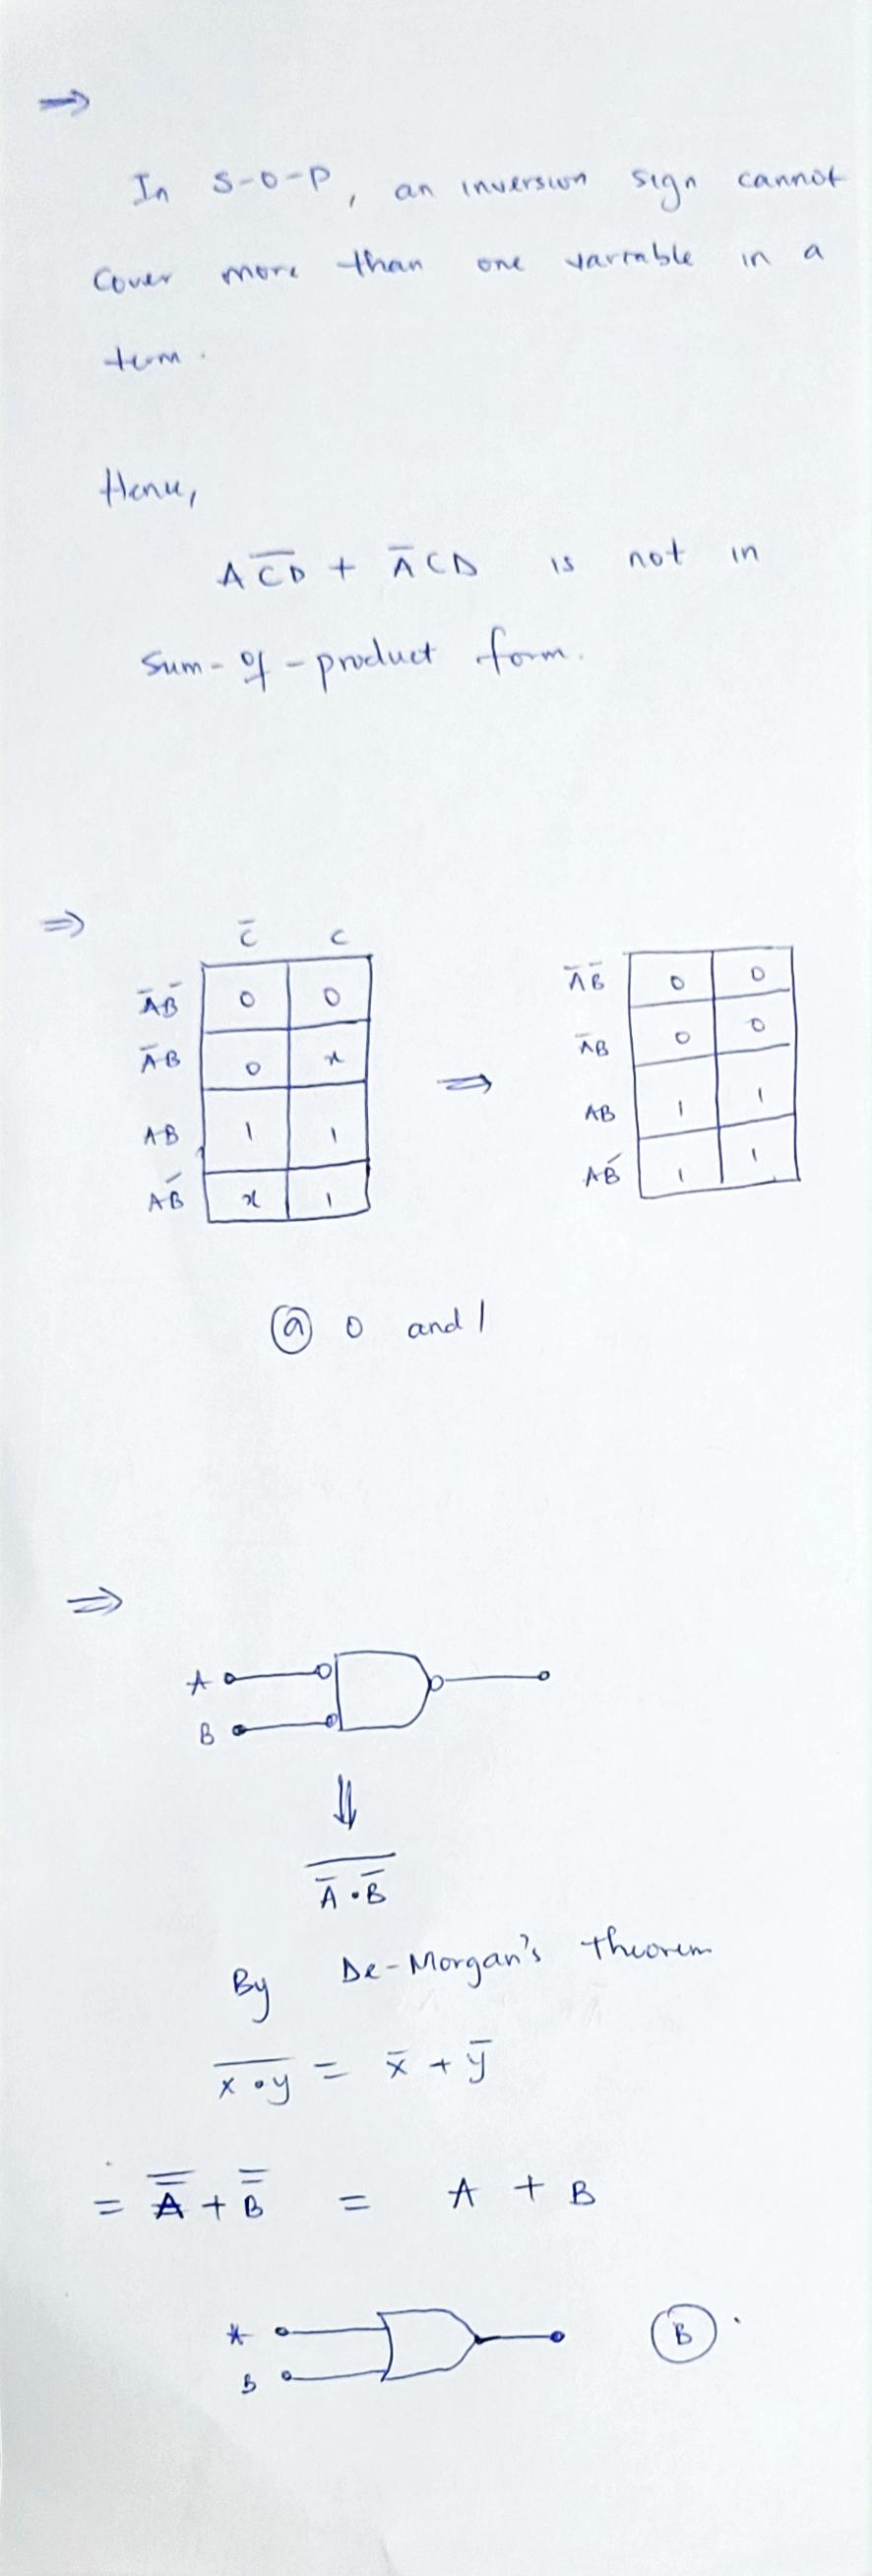 ⇒
In S-O-P, an inversion sign cannot
cover more than one variable in a
term.
Hence,
A C̅D̅ + A̅CD is not in
Sum-of-product form.
⇒
C̅ C
A̅B̅ 0 0
A̅B 0 x
AB 1 1
AB̅ x 1
⇒
A̅B̅ 0 0
A̅B 0 0
AB 1 1
AB̅ 1 1
ⓐ 0 and 1
⇒
A
B
⇓
\overline{A̅ · B̅}
By De-Morgan's theorem
\overline{x · y} = x̅ + y̅
= \overline{\overline{A}} + \overline{\overline{B}} = A + B
A
B
Ⓑ.